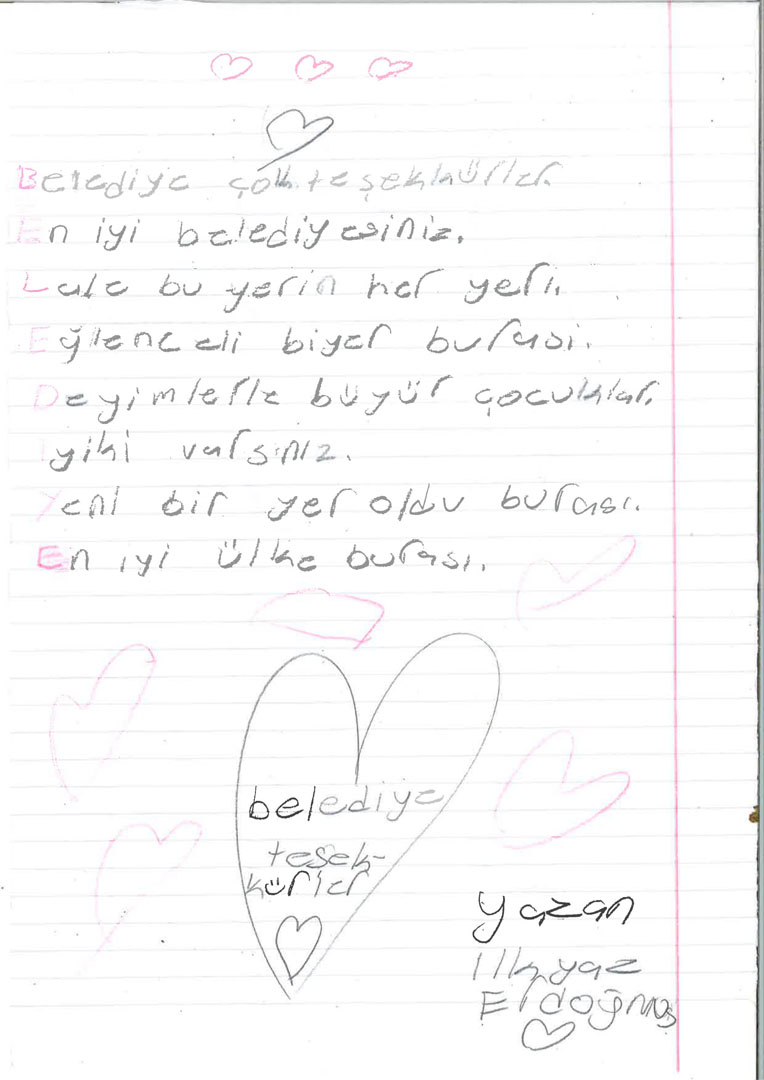 Belediye çok teşekkürler.
En iyi belediyesiniz.
Lale bu yerin her yeri.
Eğlenceli biyer burasi.
Deyimlerle büyür çocuklar.
iyiki varsınız.
Yeni bir yer oldu burası.
En iyi ülke burası.
belediye
teşek-
kürler
yazan
Ilkyaz
Erdoğmuş